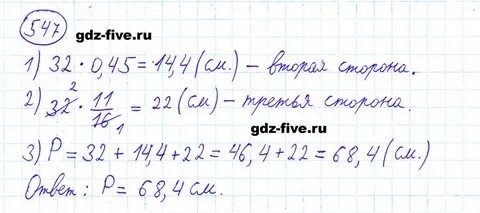 547 gdz-five.ru
1) 32 · 0,45 = 14,4 (см.) – вторая сторона.
2) 32 2 · 11/16 1 = 22 (см) – третья сторона.
gdz-five.ru
3) P = 32 + 14,4 + 22 = 46,4 + 22 = 68,4 (см.)
Ответ: P = 68,4 см.